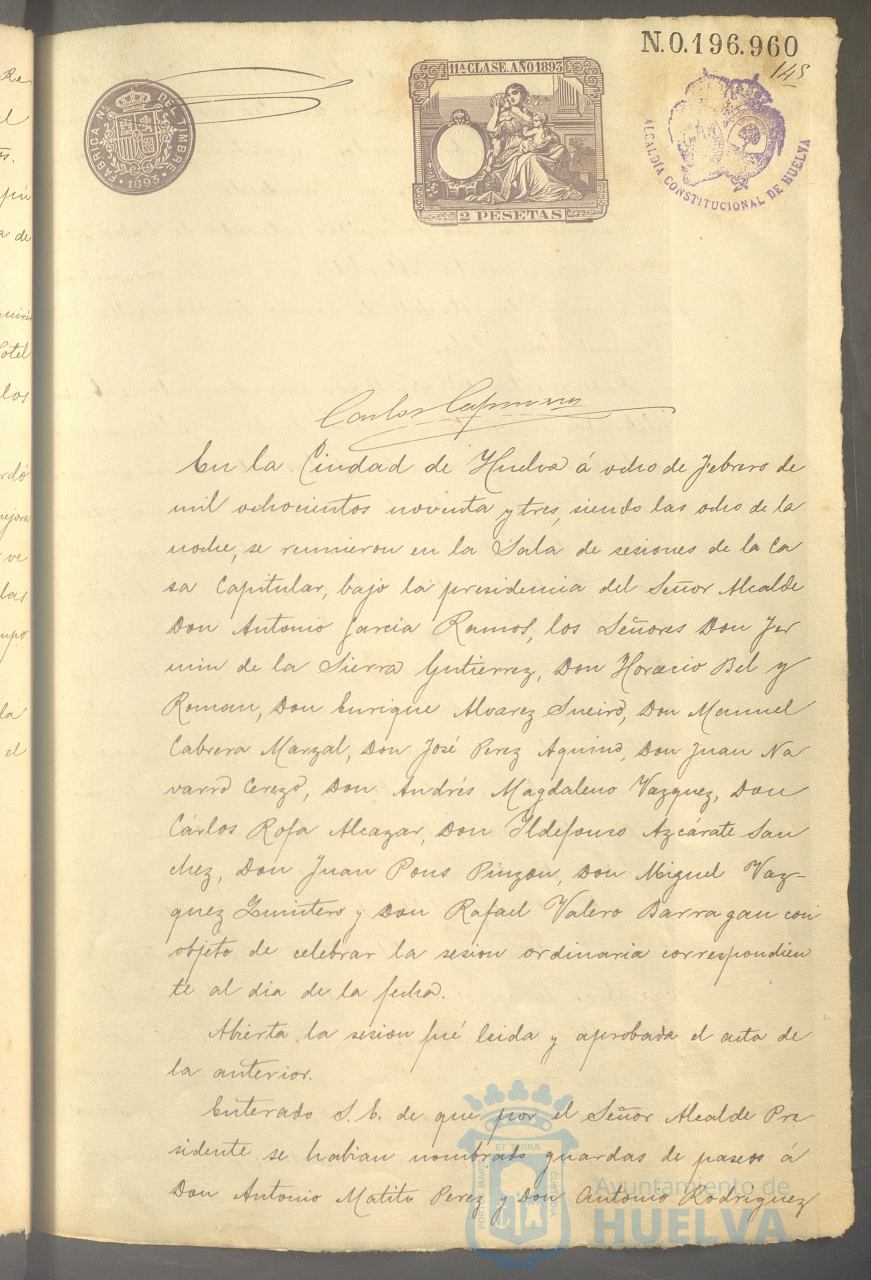 N.0.196.960
145
FABRICA Nˡ. DEL TIMBRE
1893
11ª CLASE. AÑO 1893
2 PESETAS
ALCALDÍA CONSTITUCIONAL DE HUELVA
Carlos
En la Ciudad de Huelva á ocho de Febrero de
mil ochocientos noventa y tres, siendo las ocho de la
noche, se reunieron en la Sala de sesiones de la Ca
sa Capitular, bajo la presidencia del Señor Alcalde
Don Antonio Garcia Ramos, los Señores Don Fer
min de la Sierra Gutierrez, Don Horacio Bel y
Roman, Don Enrique Alvarez Sueiro, Don Manuel
Cabrera Marzal, Don José Perez Aquino, Don Juan Na
varro Cerezo, Don Andrés Magdaleno Vazquez, Don
Cárlos Rofa Alcazar, Don Ildefonso Azcárate San
chez, Don Juan Pons Pinzon, Don Miguel Vaz-
quez Quintero y Don Rafael Valero Barragan con
objeto de celebrar la sesion ordinaria correspondien
te al dia de la fecha.
Abierta la sesion fué leida y aprobada el acta de
la anterior.
Enterado S. E. de que por el Señor Alcalde Pre
sidente se habian nombrado guardas de paseos á
Don Antonio Matito Perez y Don Antonio Rodriguez
PORTUS MARIS ET TERRÆ CUSTODIA
Ayuntamiento de
HUELVA